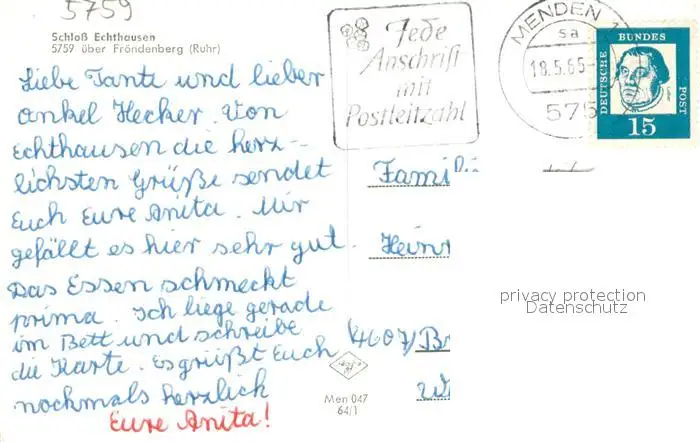 5759
Schloß Echthausen
5759 über Fröndenberg (Ruhr)
Liebe Tante und lieber
onkel Hecker. Von
Echthausen die herz-
lichsten Grüße sendet
Euch Eure Anita. Mir
gefällt es hier sehr gut.
Das Essen schmeckt
prima. Ich liege gerade
im Bett und schreibe
die Karte. Es grüßt Euch
nochmals herzlich
Eure Anita!
Men 047
64/1
Jede
Anschrift
mit
Postleitzahl
MENDEN 1
sa
18.5.65
575
DEUTSCHE
BUNDES
POST
15
Fami
Hein
(4607) Br
W
privacy protection
Datenschutz